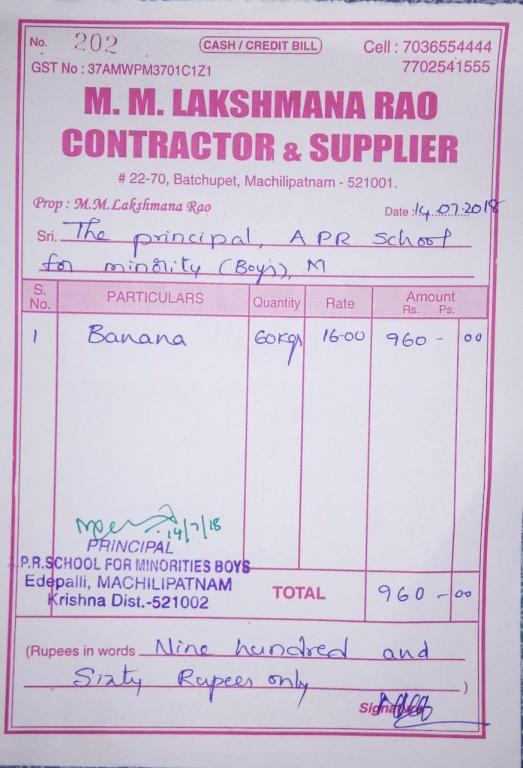 No. 202 CASH / CREDIT BILL Cell : 7036554444
GST No : 37AMWPM3701C1Z1 7702541555
M. M. LAKSHMANA RAO
CONTRACTOR & SUPPLIER
# 22-70, Batchupet, Machilipatnam - 521001.
Prop : M.M.Lakshmana Rao
Date : 14.07.2018
Sri. The principal, APR School
for minority (Boys), M
S. No. PARTICULARS Quantity Rate Amount Rs. Ps.
1 Banana 60kgs 16-00 960 - 00
14/7/18
PRINCIPAL
A.P.R.SCHOOL FOR MINORITIES BOYS
Edepalli, MACHILIPATNAM
Krishna Dist.-521002
TOTAL 960 - 00
(Rupees in words Nine hundred and
Sixty Rupees only )
Signature